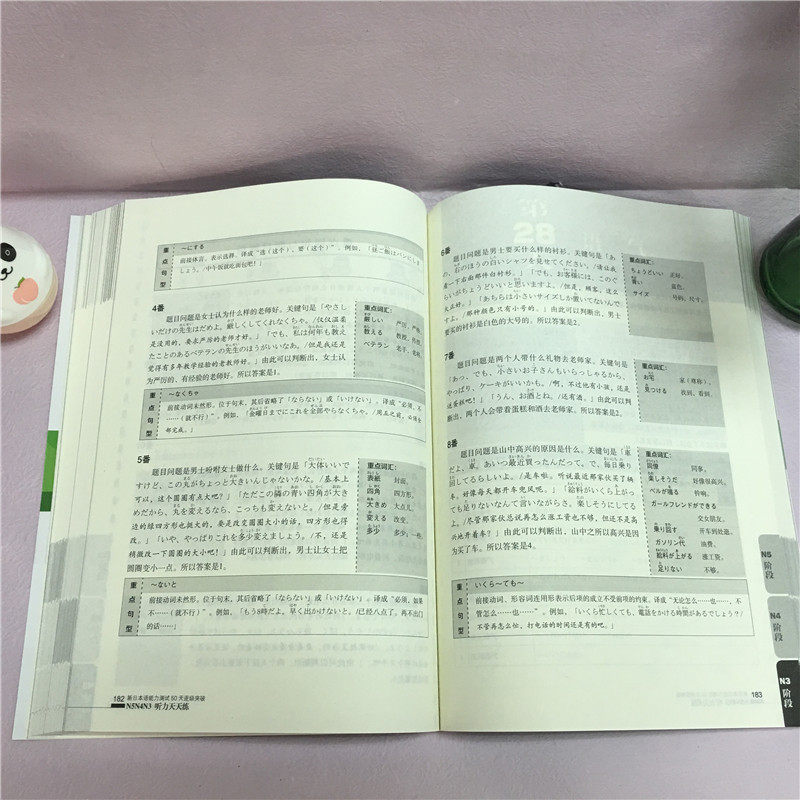 重点句型
～にする
前接体言，表示选择。译成“选（这个）、要（这个）”。例如，「昼ご飯はパンにしま
しょう。/中午饭就吃面包吧！」
4番
题目问题是女士认为什么样的老师好。关键句是「やさし
いだけの先生はだめよ。厳しくしてくれなくちゃ。/仅仅温柔
是没用的，要求严厉的老师才好。」「でも、私は何年も教え
たことのあるベテランの先生のほうがいいなあ。/但是我还是
觉得有多年教学经验的老教师好。」由此可以判断出，女士认
为严厉的、有经验的老师好。所以答案是1。
重点词汇：
厳しい 严厉，严格。
教える 教授，教。
ベテラン 老手，老练。
重点句型
～なくちゃ
前接动词未然形。位于句末，其后省略了「ならない」或「いけない」。译成“必须、不……
……（就不行）”。例如，「金曜日までにこれを全部やらなくちゃ。/周五之前，必须全
部完成。」
5番
题目问题是男士吩咐女士做什么。关键句是「大体いいで
すけど、この丸がちょっと大きいんじゃないかな。/基本上
可以，这个圆圈有点大吧？」「ただこの隣の青い四角が大き
めだから、丸を変えるなら、こっちも変えないと。/但是旁
边的绿四方形也挺大的，要是改变圆圈大小的话，四方形也得
改。」「いや、やっぱりこれを多少変えましょう。/不，还是
稍微改一下圆圈的大小吧！」由此可以判断出，男士让女士把
圆圈变小一点。所以答案是1。
重点词汇：
表紙 封面。
四角 四方形。
大きめ 大点儿。
変える 改变。
多少 多少；一些。
重点句型
～ないと
前接动词未然形。位于句末，其后省略了「ならない」或「いけない」。译成“必须、如果
不……（就不行）”。例如，「もう8時だよ。早く出かけないと。/已经八点了。再不出门
的话……」
182 新日本语能力测试50天逐级突破
N5N4N3 听力天天练
第
28
6番
题目问题是男士要买什么样的衬衫。关键句是「あ
の、右のほうの白いシャツを見せてください。/请让我
看一下右面那件白衬衫。」「でも、お客様には、このぐ
らいがちょうどいいと思いますよ。/但是，顾客，这么
大正好。」「あちらは小さいサイズしか置いてないんで
すよ。/那种颜色只有小号的。」由此可以判断出，男士
要买的衬衫是白色的大号的。所以答案是2。
重点词汇：
ちょうどいい 正好。
青い 蓝色。
サイズ 号码，尺寸。
7番
题目问题是两个人带什么礼物去老师家。关键句是
「あっ、でも、小さいお子さんもいらっしゃるから、
やっぱり、ケーキがいいかも。/啊，不过他有小孩，还是
送蛋糕吧！」「うん、お酒とね。/还有酒。」由此可以判
断出，两个人会带着蛋糕和酒去老师家。所以答案是2。
重点词汇：
お宅 家（尊称）。
見つける 找到，看到。
8番
题目问题是山中高兴的原因是什么。关键句是「車
だよ、車。あいつ最近買ったんだって。で、毎日乗り
回してるらしいよ。/是车啦。听说最近那家伙买了辆
车。好像每天都开车兜风呢。」「給料がいくら上がっ
ても足りないなんて言いながらさ。楽しそうにしてる
よ。/尽管那家伙总说再怎么涨工资也不够，但还不是高
兴地开着车？」由此可以判断出，山中之所以高兴是因
为买了车。所以答案是4。
重点词汇：
同僚 同事。
楽しそうだ 好像很高兴。
ベルが鳴る 铃响。
ガールフレンドができる
交女朋友。
乗り回す 开车到处逛。
ガソリン代 油费。
給料が上がる 涨工资。
足りない 不够。
重点句型
いくら～ても～
前接动词、形容词连用形表示后项的成立不受前项的约束。译成“无论怎么……也……，不
管怎么……也……”。例如，「いくら忙しくても、電話をかける時間があるでしょう？/
不管再怎么忙，打电话的时间还是有的吧。」
183
N5
阶段
N4
阶段
N3
阶段